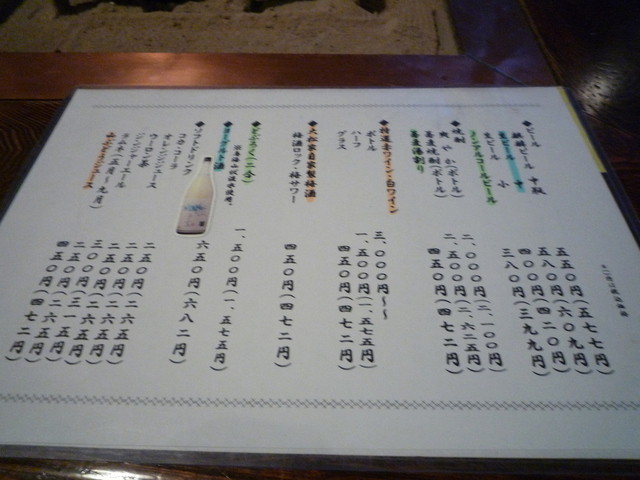 ◆ビール
麒麟ビール 中瓶
生ビール 中
生ビール 小
ノンアルコールビール
五五〇円(五七七円)
五八〇円(六〇九円)
四〇〇円(四二〇円)
三八〇円(三九九円)
◆焼酎
爽やか(ボトル)
蕎麦焼酎(ボトル)
蕎麦湯割り
二、〇〇〇円(二、一〇〇円)
二、五〇〇円(二、六二五円)
四五〇円(四七二円)
◆特選赤ワイン・白ワイン
ボトル
ハーフ
グラス
三、〇〇〇円〜
一、五〇〇円(一、五七五円)
四五〇円(四七二円)
◆大松家自家製梅酒
梅酒ロック・梅サワー
四五〇円(四七二円)
一、五〇〇円(一、五七五円)
◆ヨーグルト酒
六五〇円(六八二円)
◆ソフトドリンク
コカ・コーラ
オレンジジュース
ウーロン茶
ジンジャーエール
ラムネ(五月〜九月)
二五〇円
二五〇円(二六五円)
二五〇円(二六五円)
三〇〇円(三一五円)
二五〇円(二六五円)
四五〇円(四七二円)